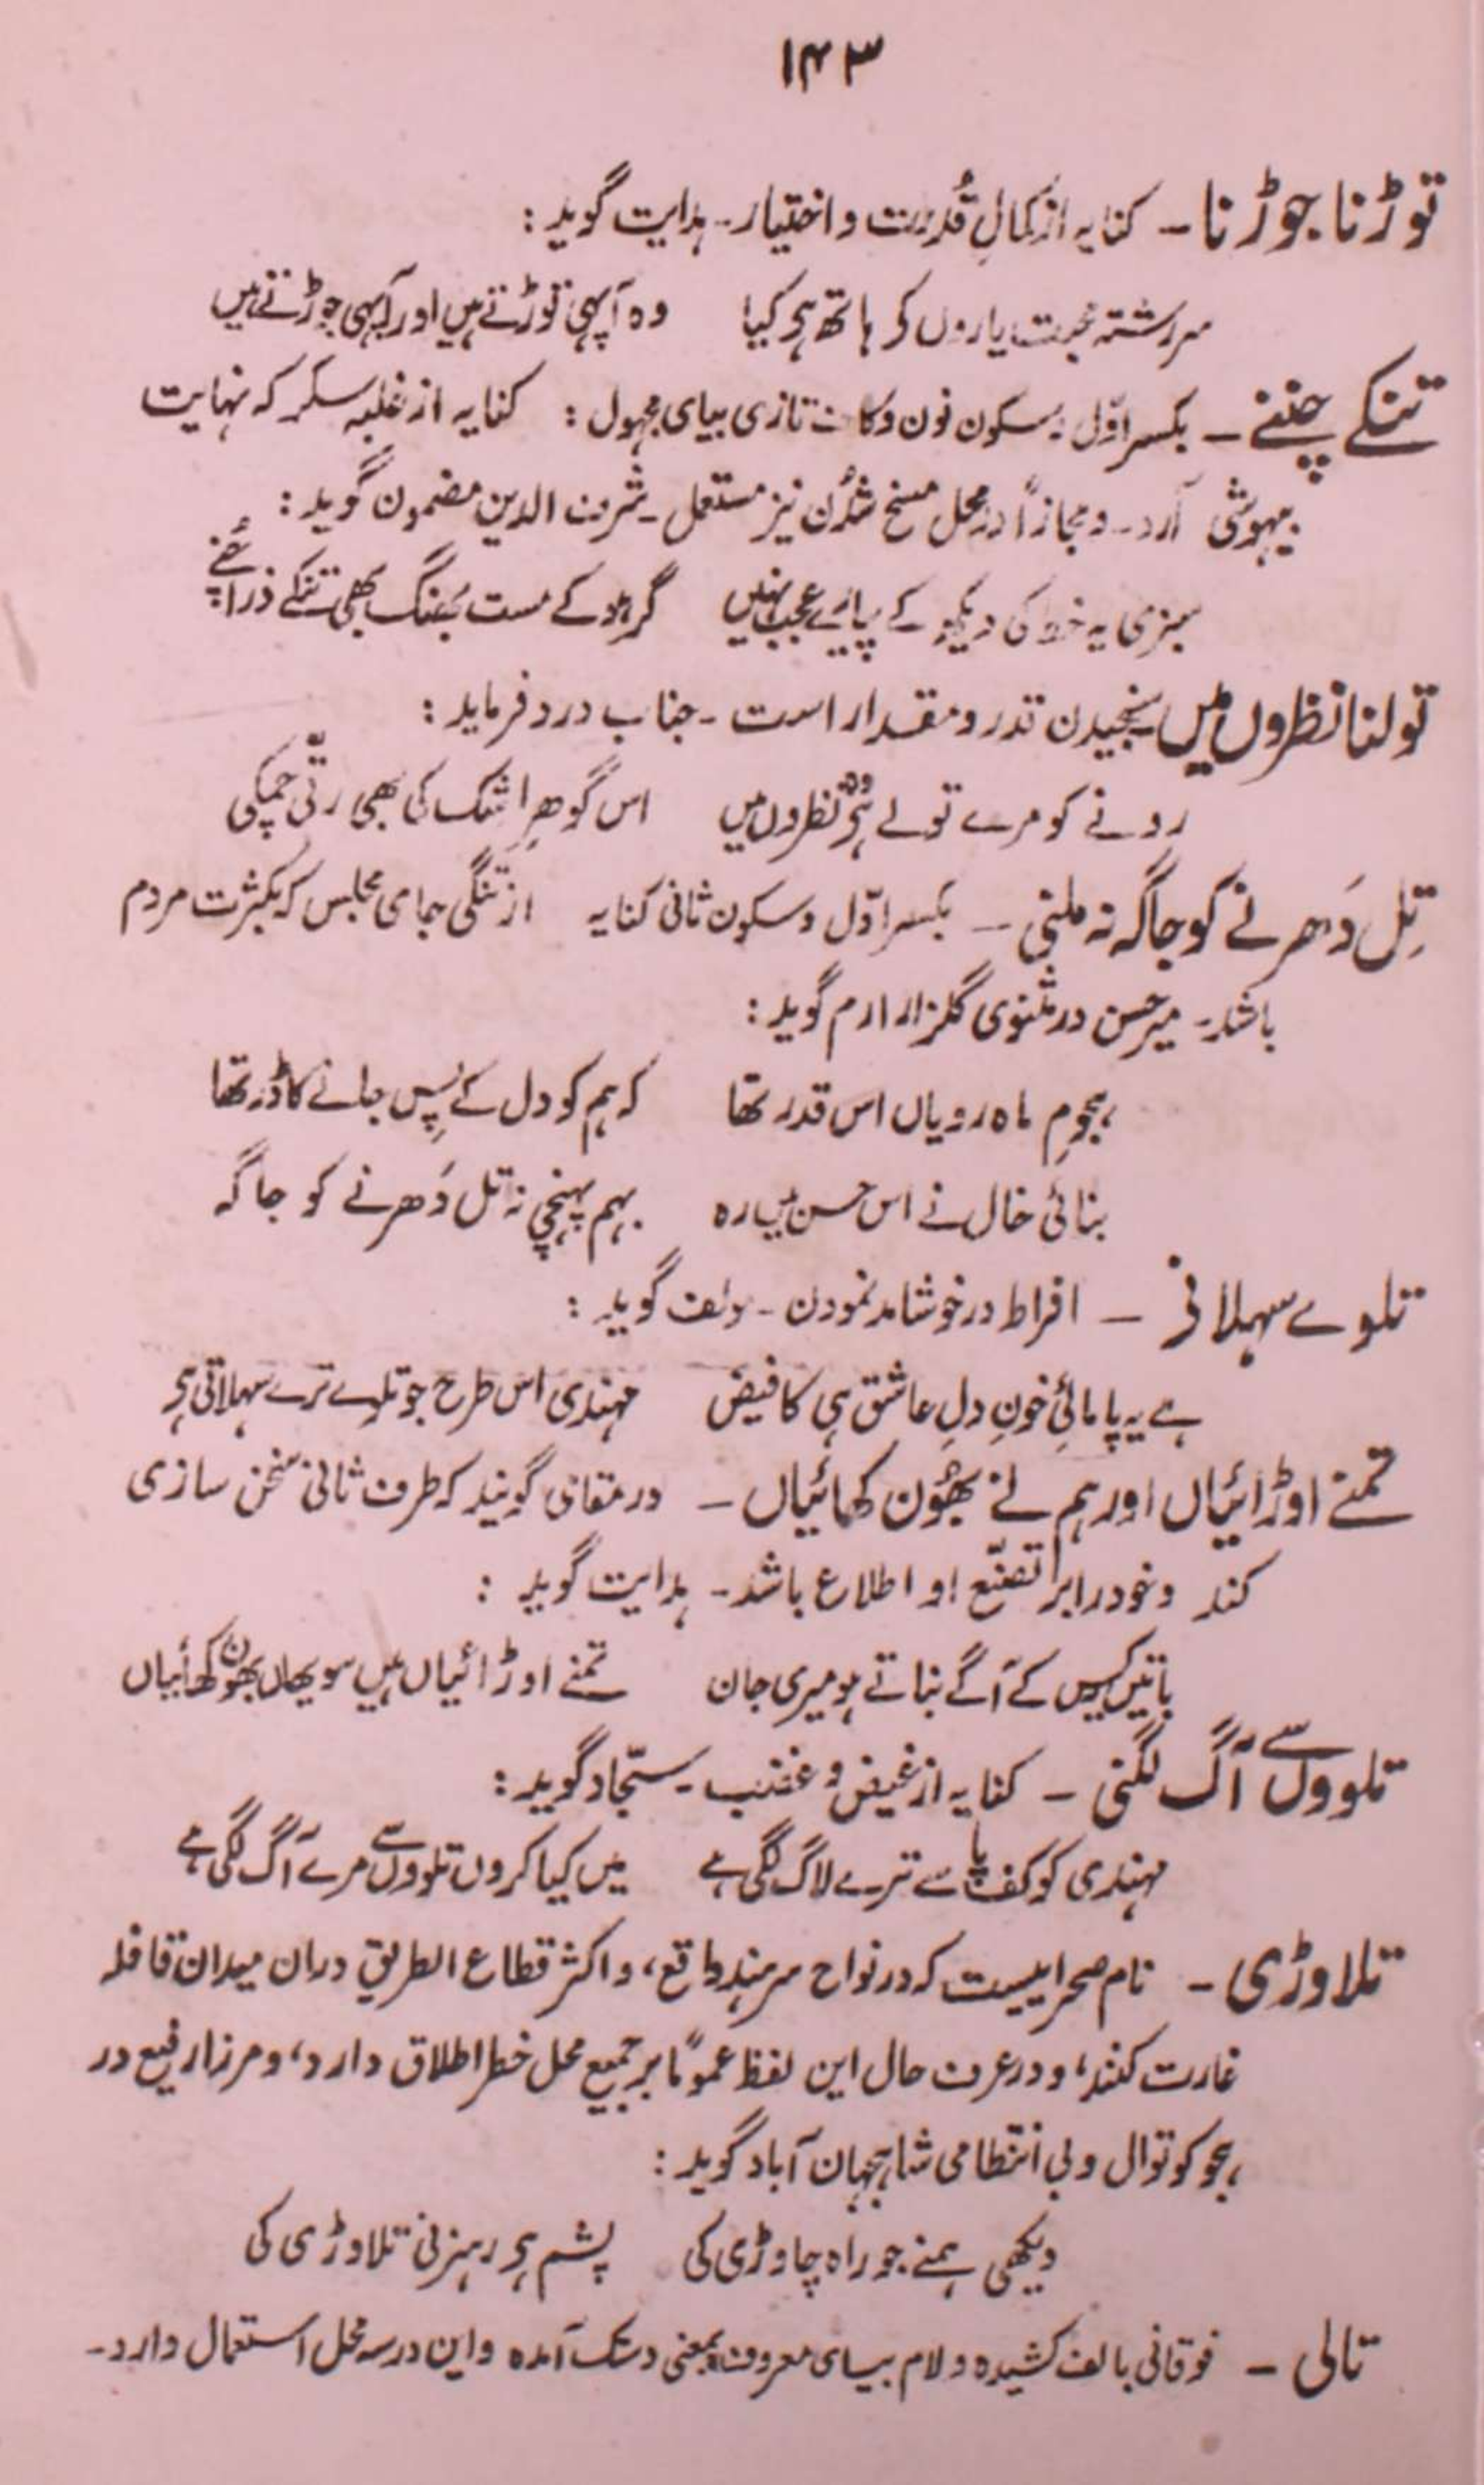 ۱۴۳
توڑنا جوڑنا ـ کنایہ از کمالِ قُدرت و اختیار ـ ہدایت گوید :
سررشتہ محبت یاروں کر ہاتھ ہی کیا وہ آپہی توڑتے ہیں اور آپہی جوڑتے ہیں
تنکے چننے ـ بکسر اوّل و سکون نون و کاف تازی بیای مجہول : کنایہ از غلبہ سکر کہ نہایت
بیہوشی آرد ـ و مجازاً در محل مسخ شدن نیز مستعمل ـ شرف الدین مضمون گوید :
سبزی یہ خط کی دیکھ کے پیارے عجب نہیں گر ہو کے مست بھنگ بھی تنکے ذرا چُنے
تولنا نظروں میں سنجیدن قدر و مقدار است ـ جناب درد فرماید :
رونے کو مرے تولے ہی وہ نظروں میں اس گوھرِ اشک کی بھی رتّی چمکی
تِل دَھرنے کو جاگہ نہ ملنی ـ بکسر اوّل و سکون ثانی کنایہ از تنگی جای مجلس کہ بکثرت مردم
باشد ـ میر حسن در مثنوی گلزار ارم گوید :
ہجومِ ماہ رویاں اس قدر تھا کہ ہم کو دل کے پِس جانے کا ڈر تھا
بنائی خال نے اس حسن میں رہ بہم پہنچی نہ تل دَھرنے کو جاگہ
تلوے سہلانی ـ افراط در خوشامد نمودن ـ مولف گوید :
ہے یہ پامالئِ خونِ دلِ عاشق ہی کا فیض مہندی اس طرح جو تلوے ترے سہلاتی ہی
تمنے اوڑائیاں اور ہم نے بھون کھائیاں ـ در مقامی گویند کہ طرف ثانی سخن سازی
کند و خود را بر تصنّع او اطلاع باشد ـ ہدایت گوید :
باتیں کیس کے آگے بناتے ہو میری جان تمنے اوڑائیاں ہیں سو یھاں بھون کھائیاں
تلووں سے آگ لگنی ـ کنایہ از غیض و غضب ـ سجّاد گوید :
مہندی کو کف پا سے ترے لاگ لگی ہے میں کیا کروں تلووں سے مرے آگ لگی ہے
تلاوڑی ـ نام صحراییست کہ در نواح سرہند واقع، و اکثر قطاع الطریق دران میدان قافلہ
غارت کنند، و در عرف حال این لفظ عموماً بر جمیع محل خطر اطلاق دارد، و مرزا رفیع در
ہجو کوتوال و بی انتظامی شاہجہان آباد گوید :
دیکھی ہمنے جو راہ چاوڑی کی پشم ہی رہزنی تلاوڑی کی
تالی ـ فوقانی بالف کشیدہ و لام بیای معروف بمعنی دستک آمدہ و این در سہ محل استعمال دارد ـ